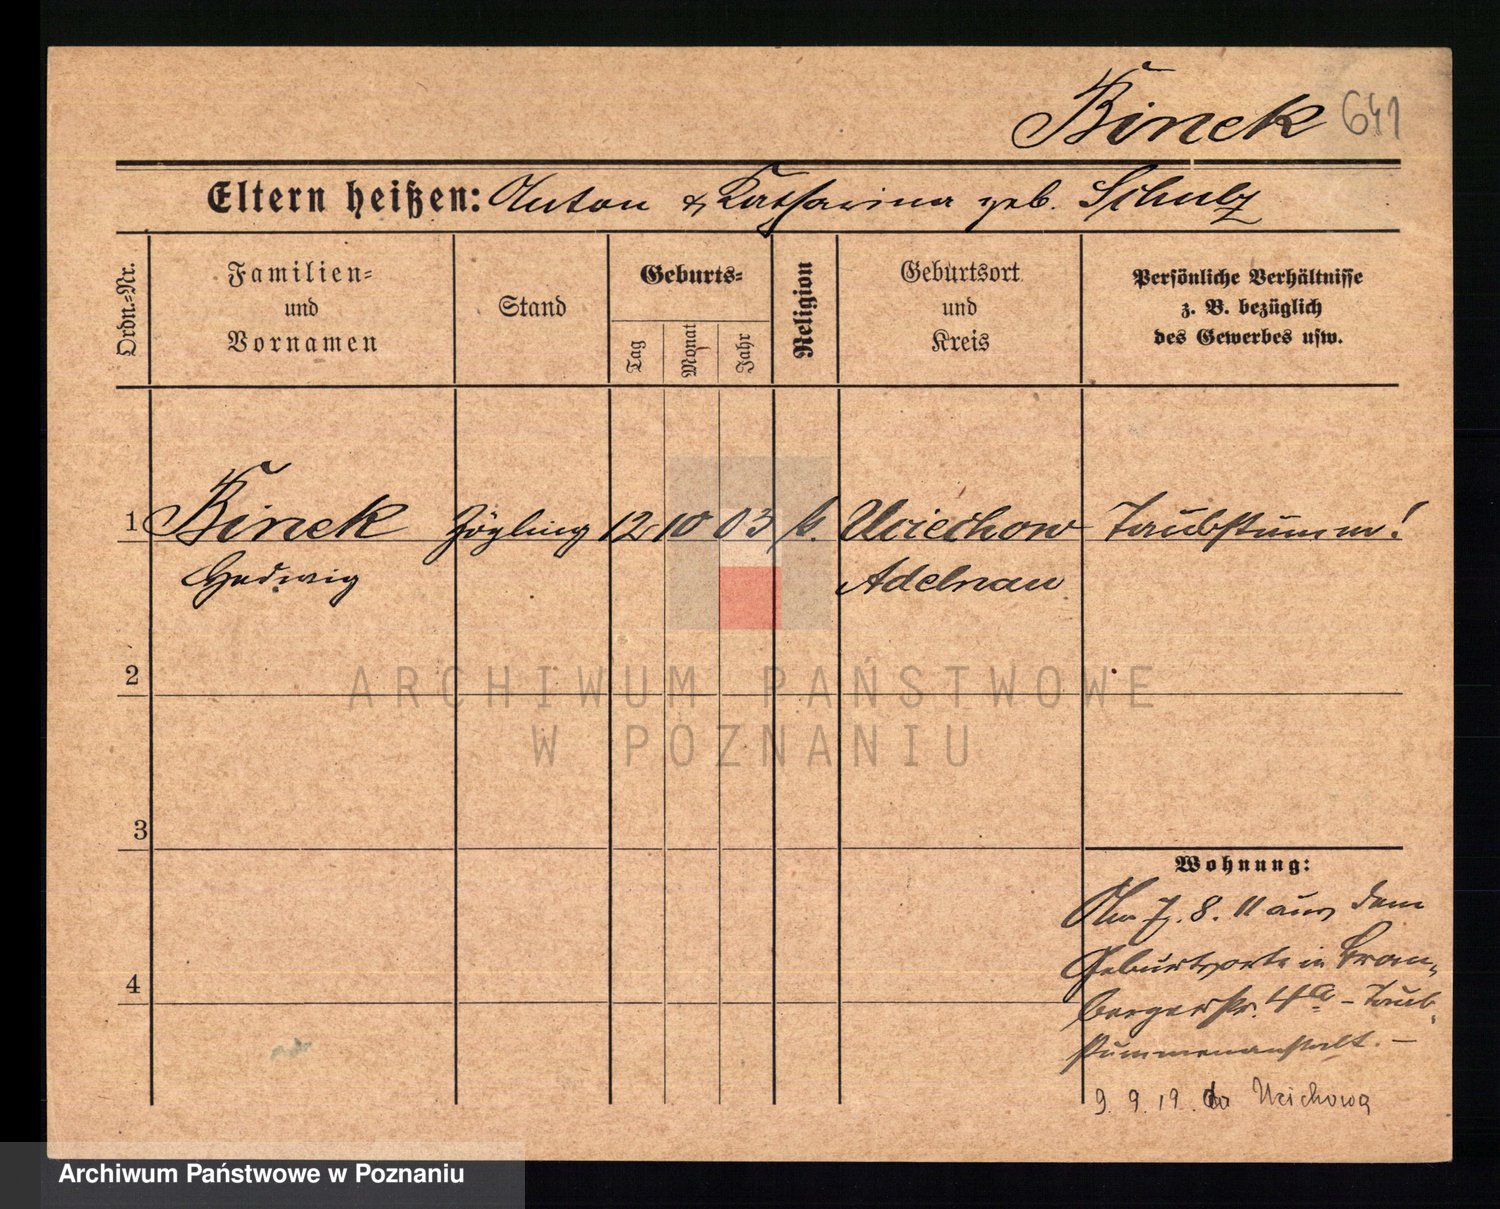 Binek 641
Eltern heißen: Anton & Katharina geb. Schulz
Ordn.-Nr.
Familien-
und
Vornamen
Stand
Geburts-
Tag
Monat
Jahr
Religion
Geburtsort
und
Kreis
Persönliche Verhältnisse
z. B. bezüglich
des Gewerbes usw.
1 Binek Zögling 12 10 03 k. Uciechow Taubstumm!
Hedwig Adelnau
2
ARCHIWUM PAŃSTWOWE
W POZNANIU
3
Wohnung:
7. 8. 11 aus dem
Geburtsorte in Bran-
bergerstr. 4a - Taub-
stummenanstalt. -
4
9. 9. 19. Ucichowa
Archiwum Państwowe w Poznaniu